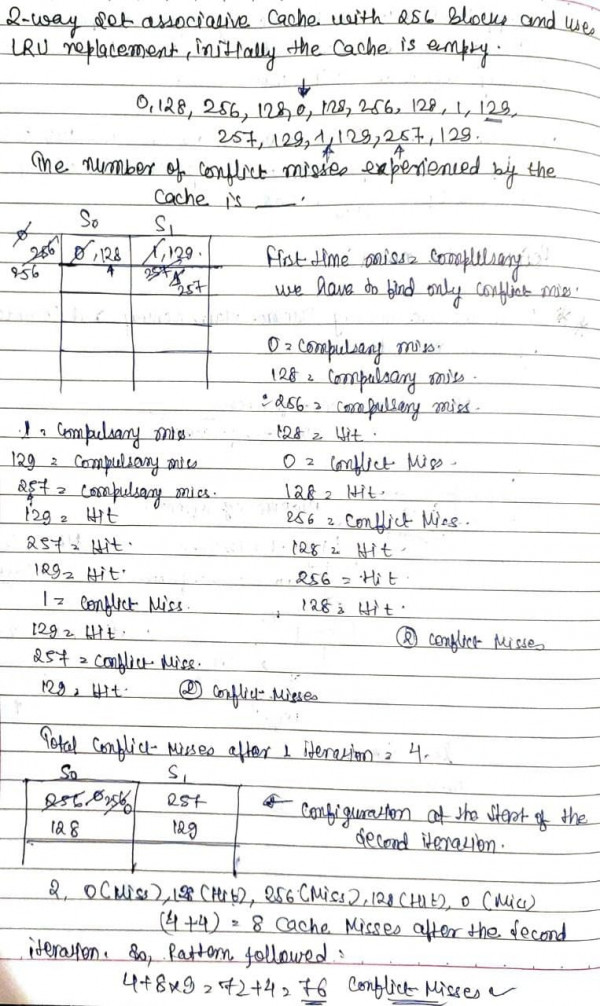 2-way set associative Cache with 256 blocks and uses
LRU replacement, initially the Cache is empty.
0, 128, 256, 128, 0, 128, 256, 128, 1, 129,
257, 129, 1, 129, 257, 129.
The number of conflict misses experienced by the
Cache is ___.
S0 S1
0 256 0, 128 1, 129.
256 257 1
257
first time miss = complusary
we have to find only conflict miss.
0 = compulsary miss.
128 = compulsary miss.
256 = compulsary miss.
1 = compulsary miss 128 = Hit.
129 = Compulsary miss 0 = conflict Miss.
257 = compulsary miss. 128 = Hit.
129 = Hit 256 = Conflict Miss.
257 = Hit. 128 = Hit
129 = Hit. 256 = Hit
1 = conflict Miss. 128 = Hit.
129 = Hit. 2 conflict Misses
257 = Conflict Miss.
129, Hit. 2 conflict Misses
Total Conflict Misses after 1 iteration = 4.
S0 S1
256 0 256 0 257 Configuration at the start of the
128 129 Second iteration.
2, 0 (Miss), 128 (Hit), 256 (Miss), 128 (Hit), 0 (Miss)
(4+4) = 8 Cache Misses after the second
iteration. So, Pattern followed:
4+8x9 = 72+4 = 76 Conflict Misses